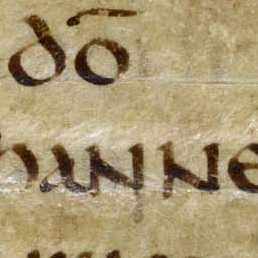 dō
hanne